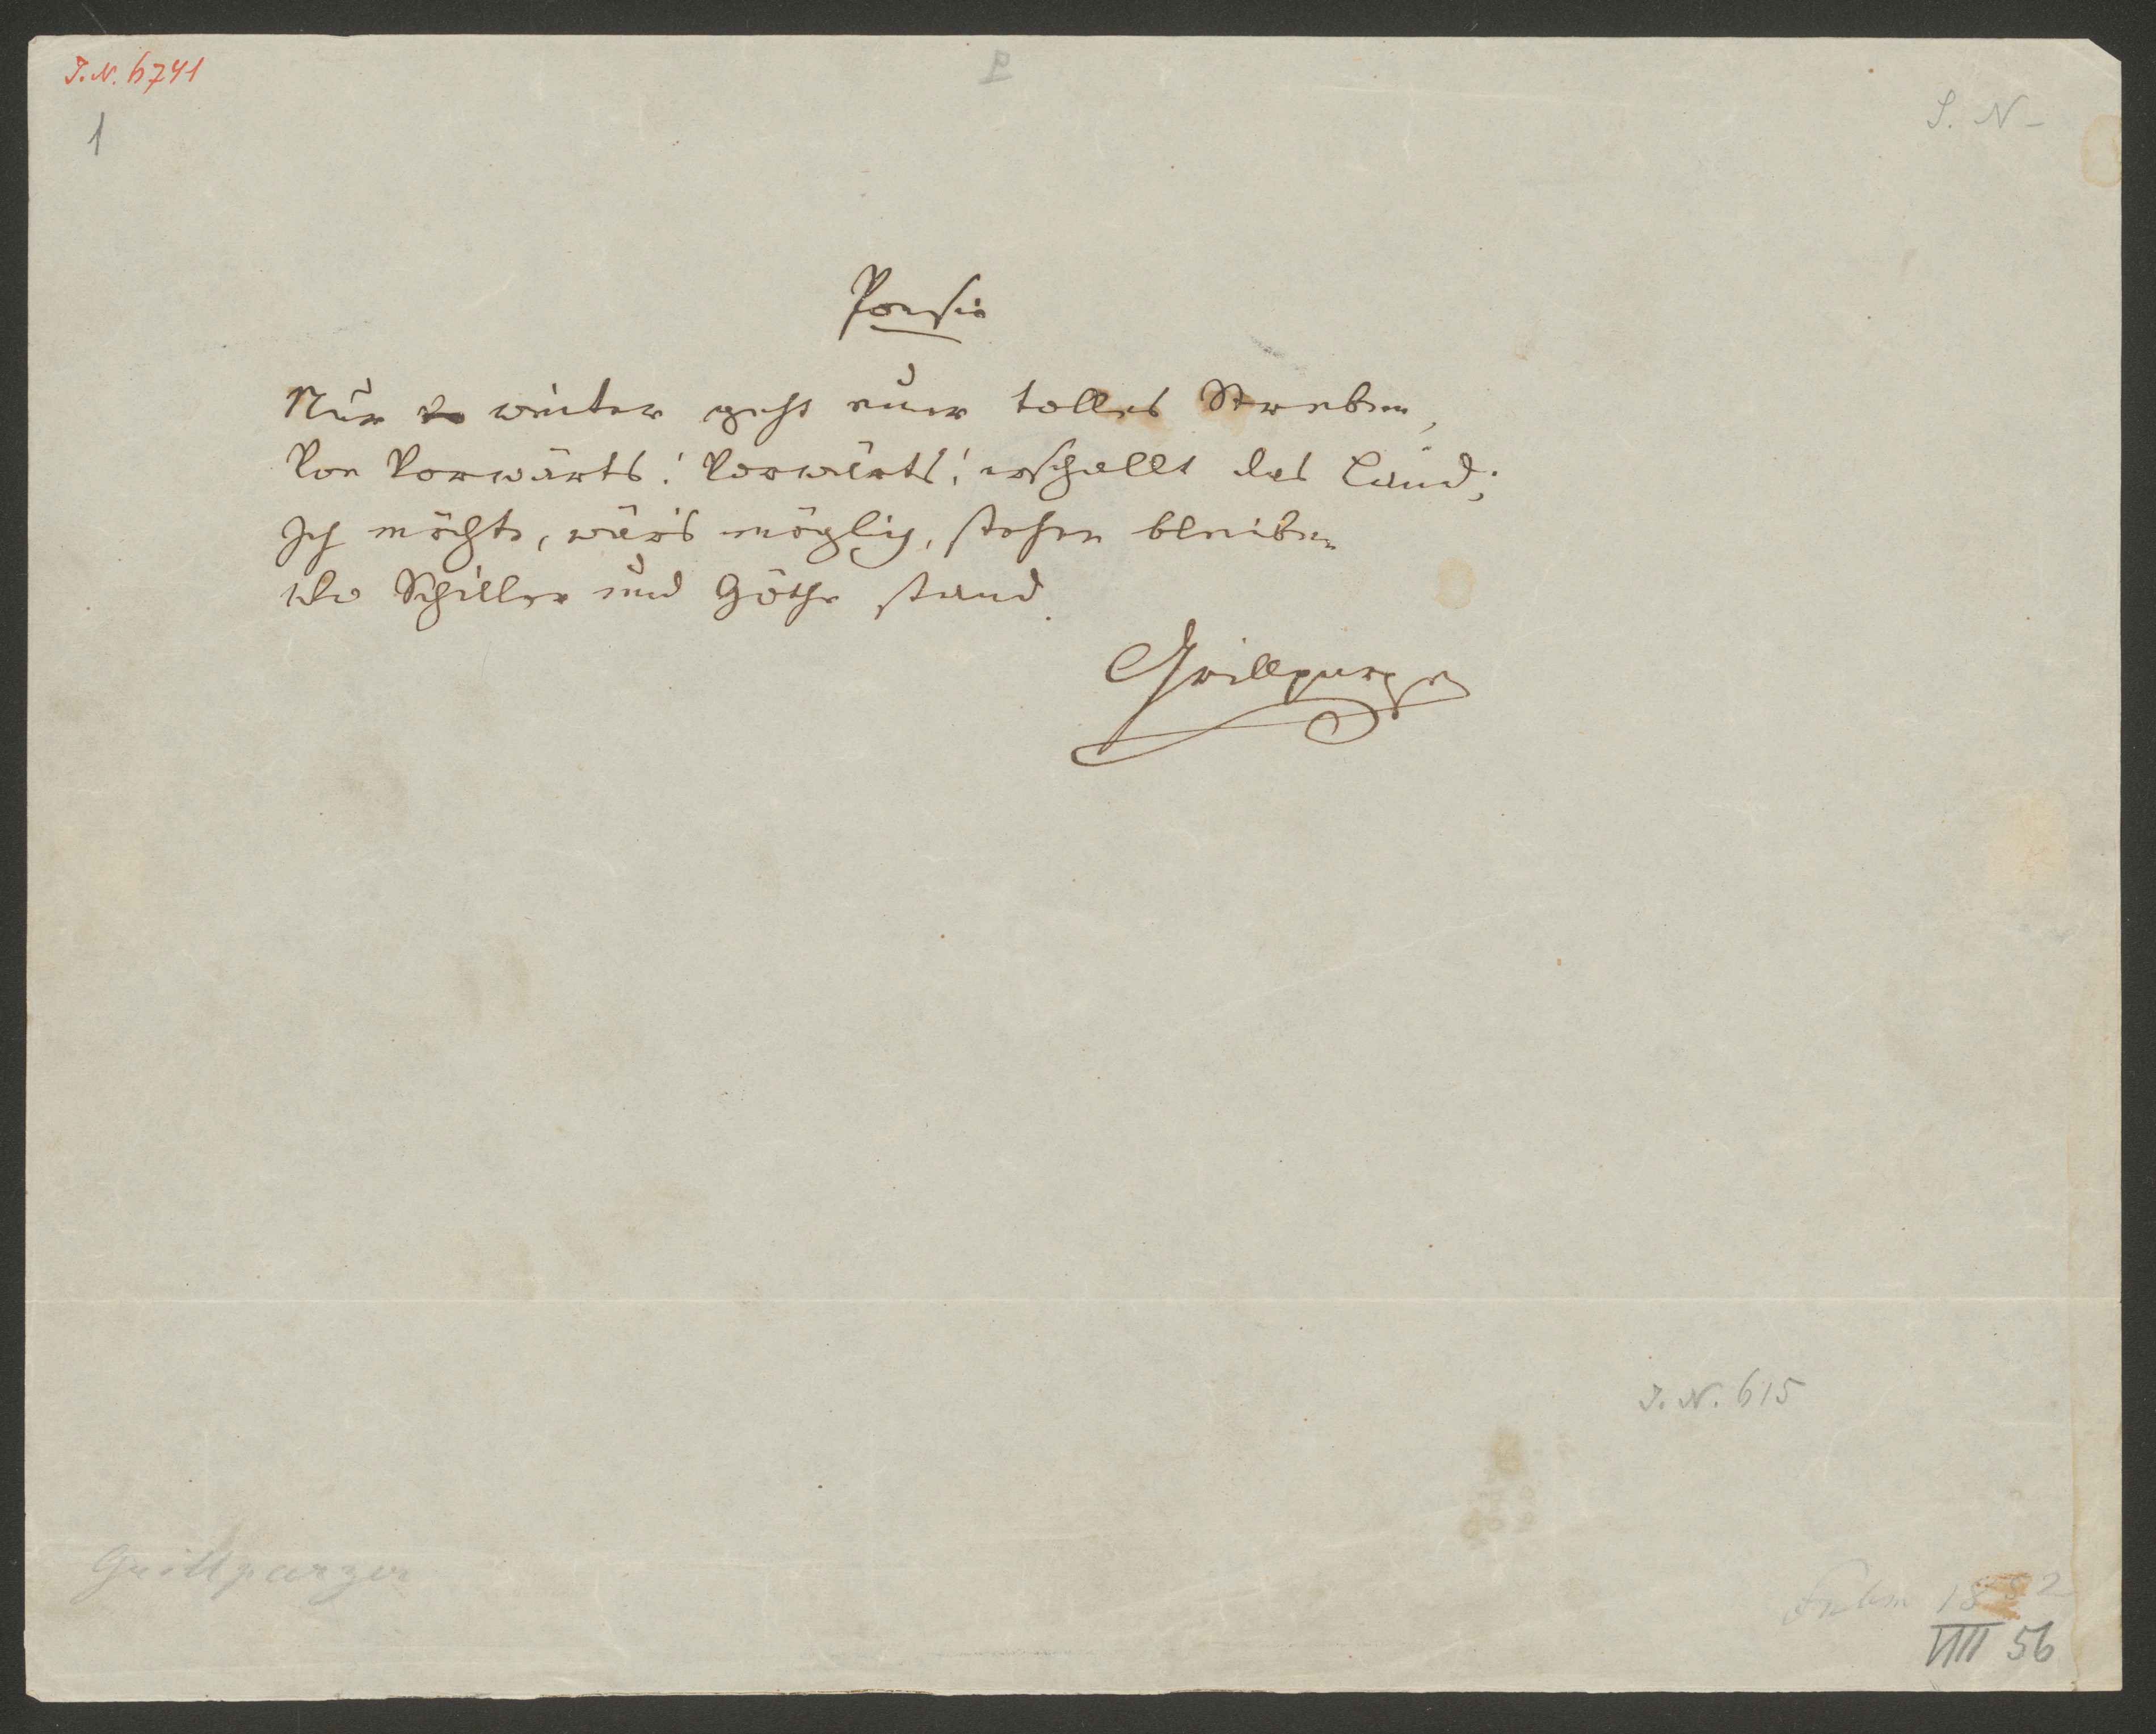 I.N. 6741
1
S. N–
Poesie
Nur weiter geht euer tolles Streben,
Von Vorwärts! Vorwärts! erschallt das Land;
Ich möchte, wär's möglich, stehen bleiben
Wo Schiller und Göthe stand.
Grillparzer
I.N. 615
Grillparzer
1882
VIII 56